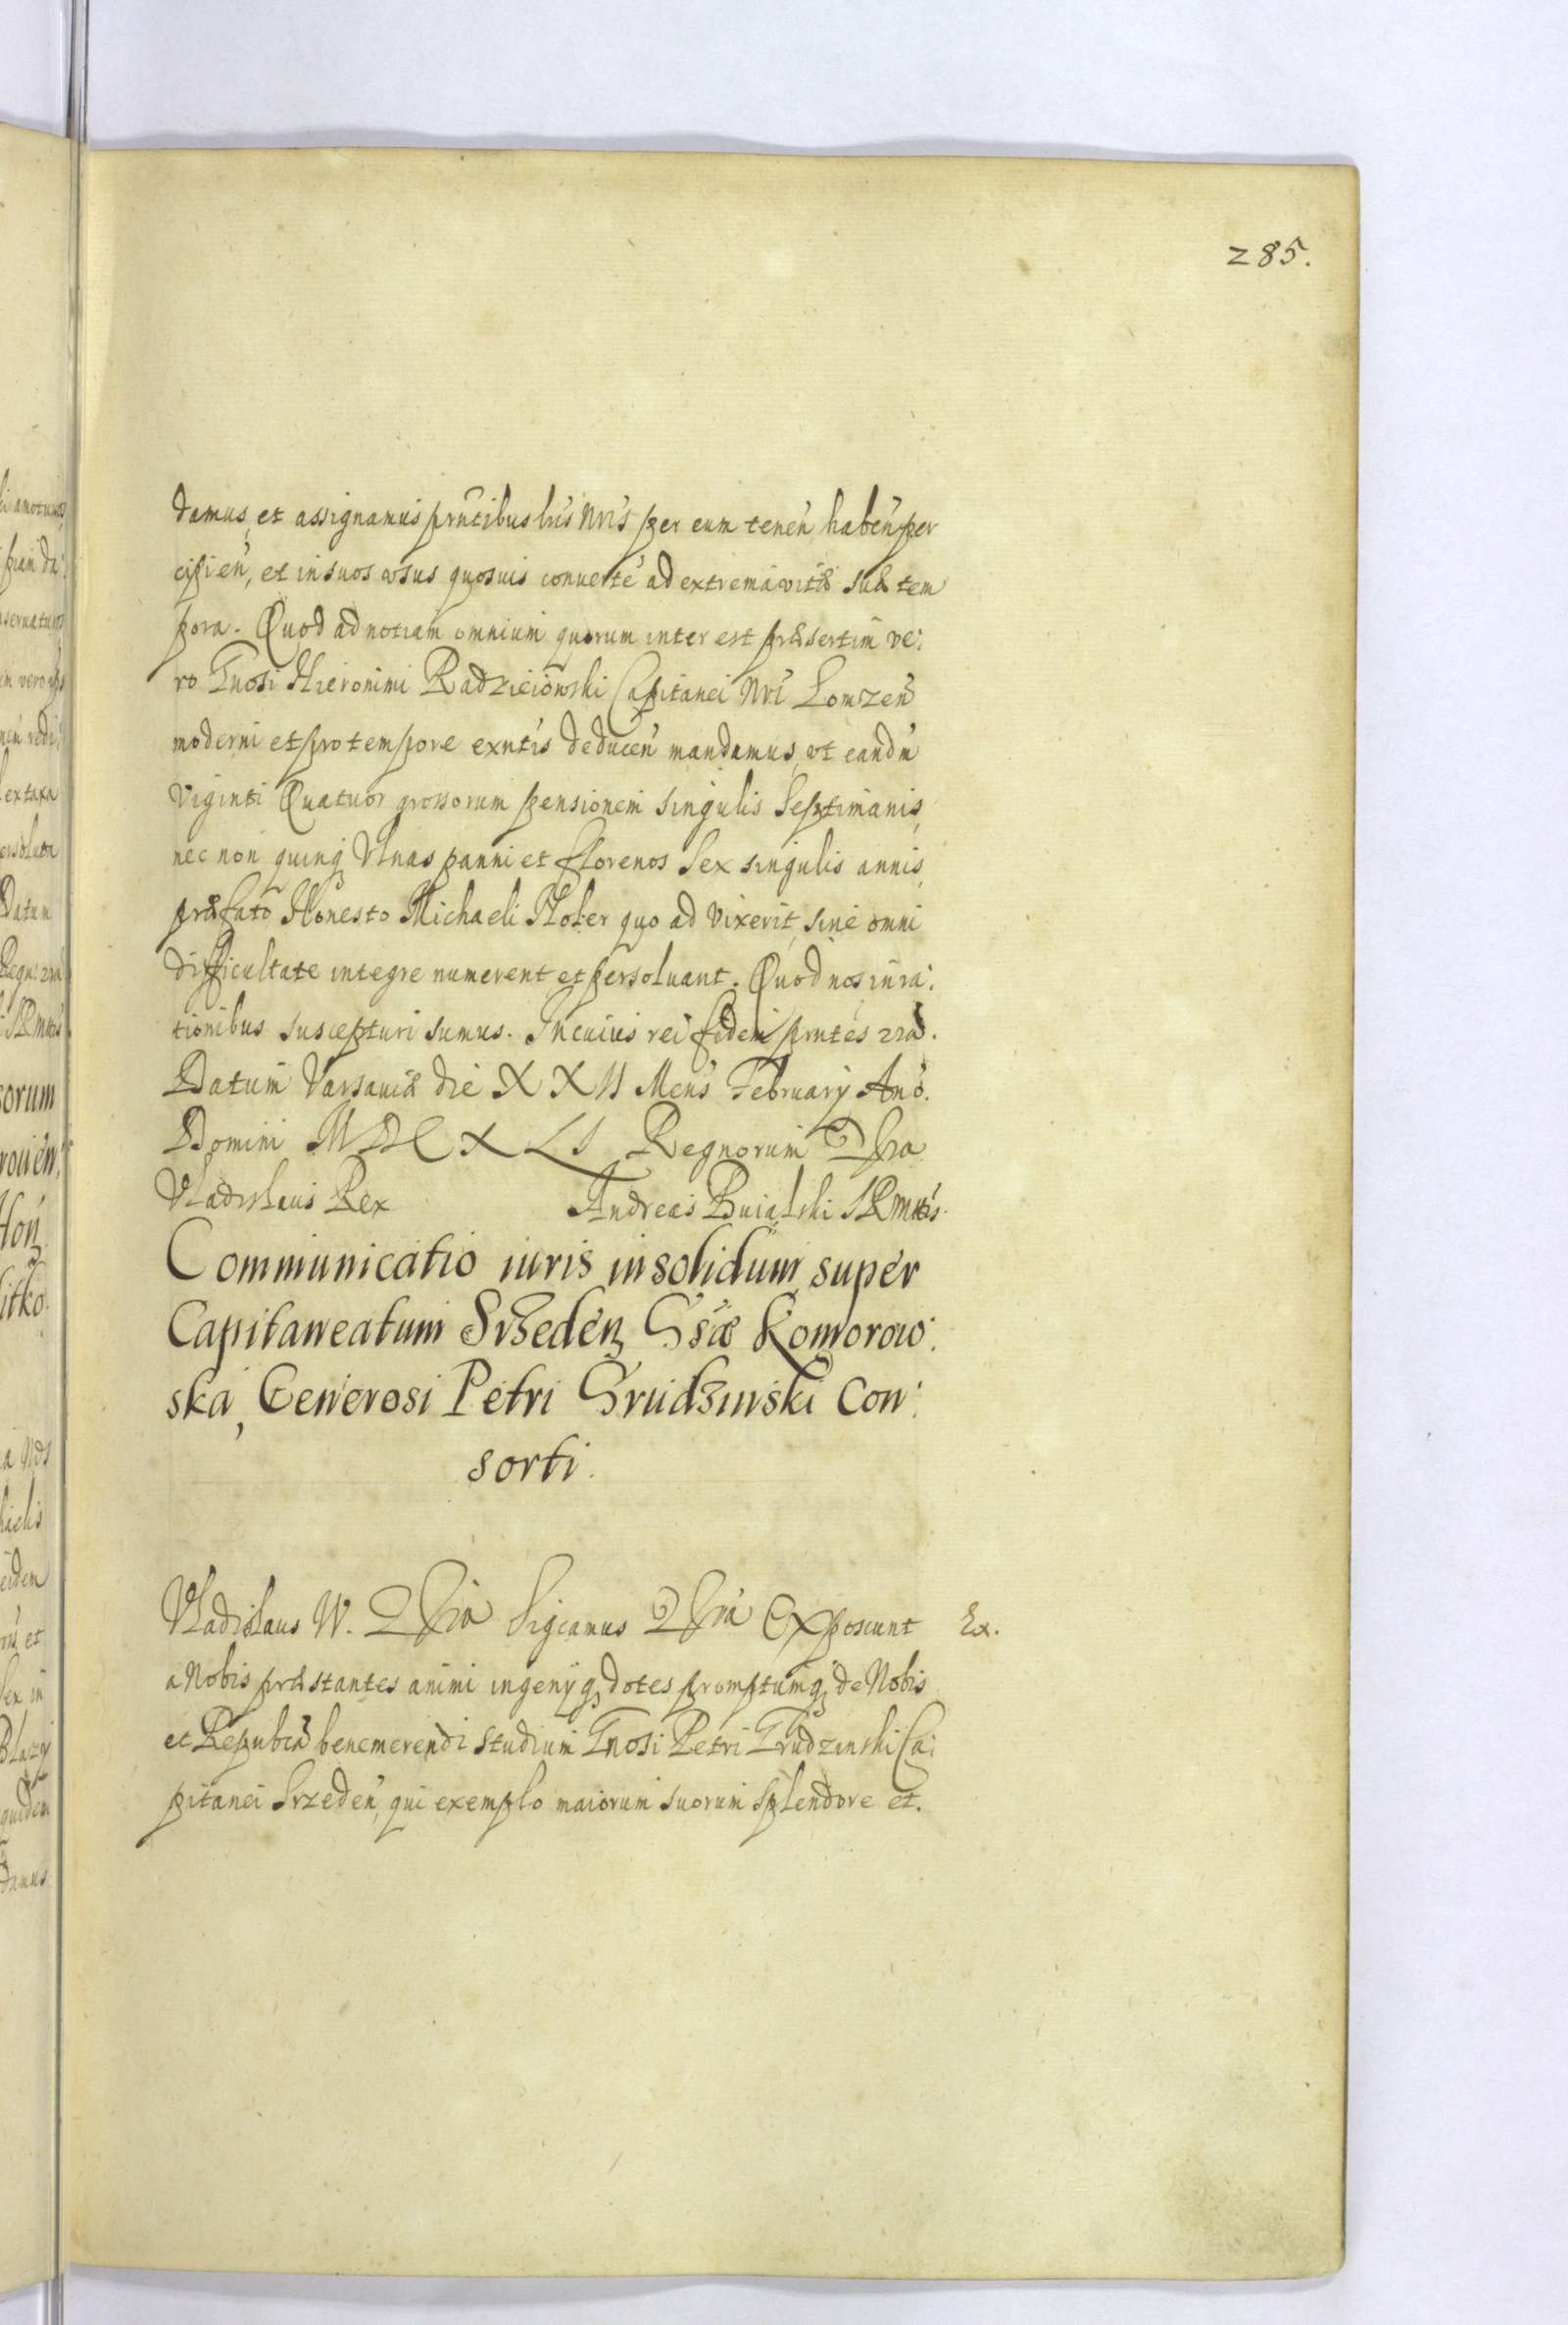 285.
damus, et assignamus prntibus lris Nris per eum tenen haben per
cipien, et in suos usus quosuis conuerte ad extrema vitæ suæ tem
pora. Quod ad notiam omnium quorum inter est præsertim ve:
ro Gnosi Hieronimi Radzieiowski Capitanei Nri Lomzen
moderni et pro tempore exntis deducen mandamus, vt eandm
Viginti Quatuor grossorum pensionem singulis Septimanis,
nec non quinq Vlnas panni et florenos Sex singulis annis,
præfato Honesto Michaeli Moler quo ad vixerit, sine omni
difficultate integre numerent et persoluant. Quod nos in ra:
tionibus suscepturi sumus. In cuius rei fidem prntes
Datum Varsauiæ die XXVI Mens February Ano.
Domini MDCXLI Regnorum
Vladislaus Rex Andreas Buialski SRMttis.
Communicatio iuris in solidum super
Capitaneatum Srzeden Gsæ Komorow:
ska, Generosi Petri Grudzinski Con:
sorti.
Vladislaus IV. Sigcamus Exposcunt Ex.
a Nobis præstantes animi ingenyq dotes promptumq de Nobis
et Republca benemerendi studium Gnosi Petri Grudzinski Ca:
pitanei Srzeden, qui exemplo maiorum suorum splendore et.